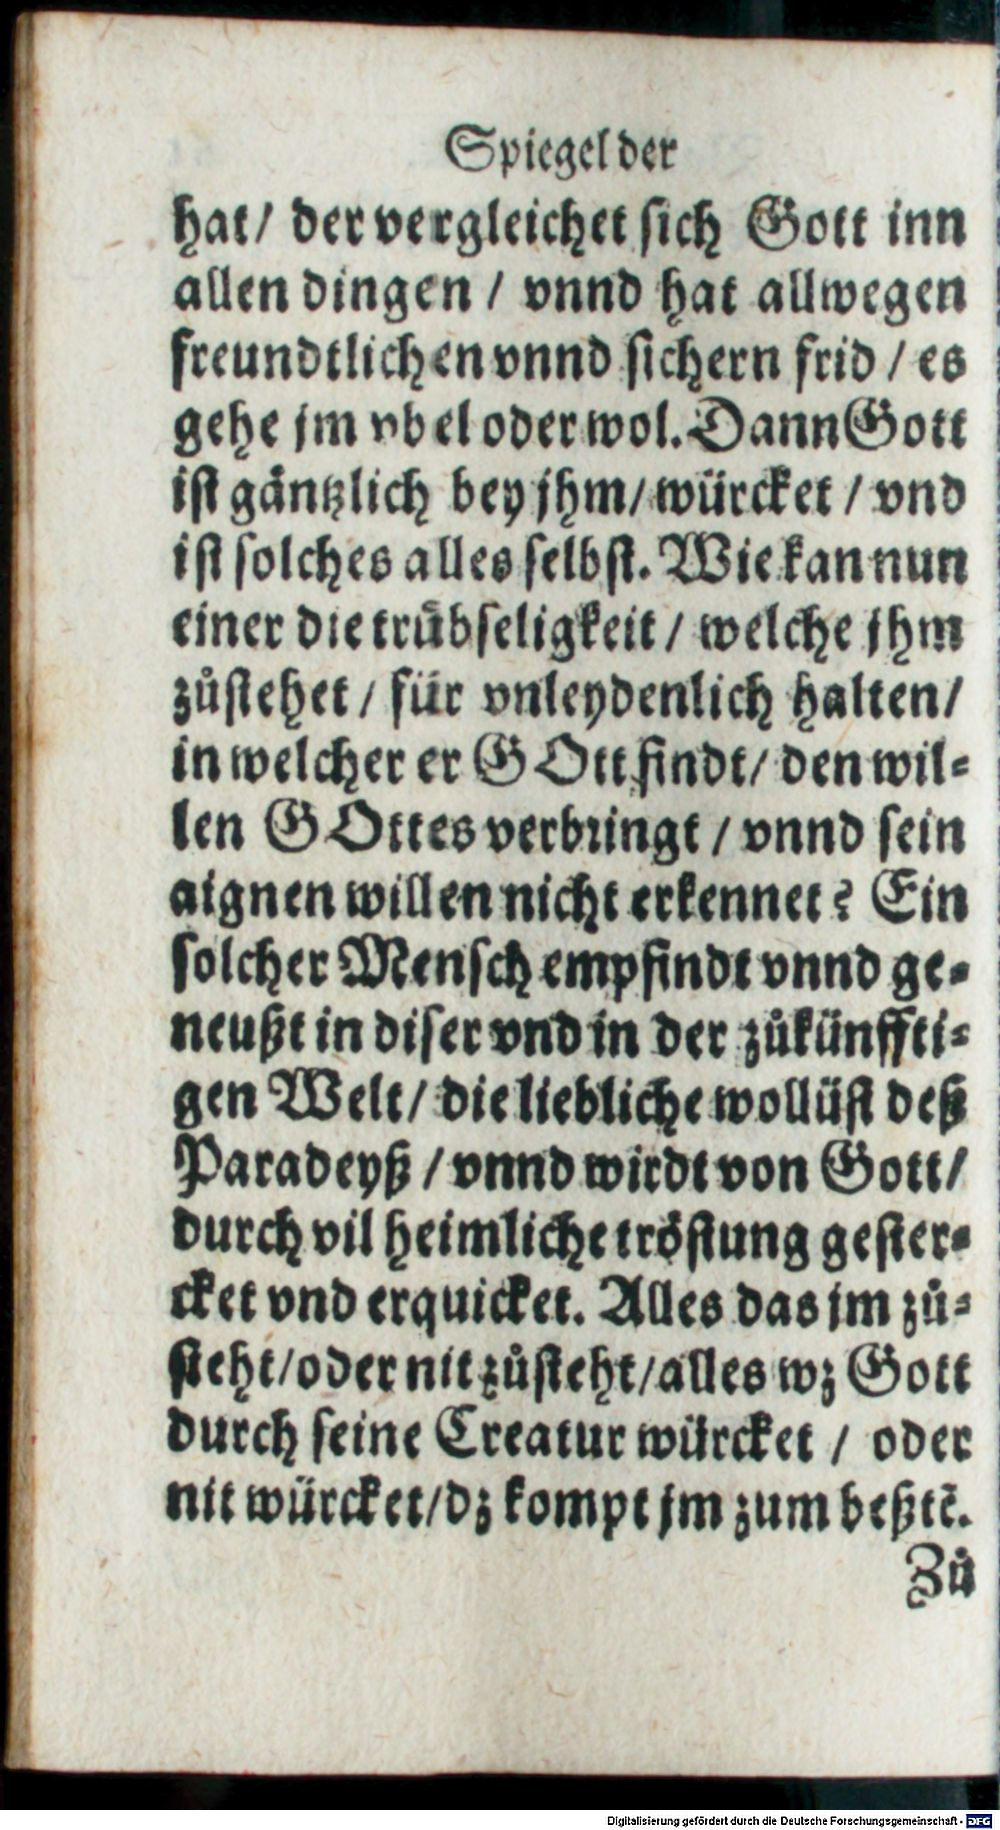 Spiegel der
hat/ der vergleichet sich Gott inn
allen dingen / vnnd hat allwegen
freundtlichen vnnd sichern frid / es
gehe jm vbel oder wol. Dann Gott
ist gäntzlich bey jhm/ würcket / vnd
ist solches alles selbst. Wie kan nun
einer die trübseligkeit / welche jhm
zůstehet / für vnleydenlich halten/
in welcher er GOtt findt/ den wil-
len GOttes verbringt / vnnd sein
aignen willen nicht erkennet? Ein
solcher Mensch empfindt vnnd ge-
neußt in diser vnd in der zůkünffti-
gen Welt/ die liebliche wollüst deß
Paradeyß / vnnd wirdt von Gott/
durch vil heimliche tröstung gester-
cket vnd erquicket. Alles das jm zů-
steht/oder nit zůsteht/alles wz Gott
durch seine Creatur würcket / oder
nit würcket/dz kompt jm zum beßtē.
Zů
Digitalisierung gefördert durch die Deutsche Forschungsgemeinschaft - DFG